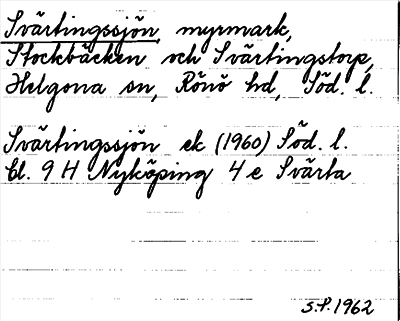 Svärtingssjön, myrmark,
Stockbäcken och Svärtingstorp,
Helgona sn, Rönö hd, Söd. l.
Svärtingssjön ek (1960) Söd. l.
bl. 9 H Nyköping 4 e Svärta
S.P. 1962